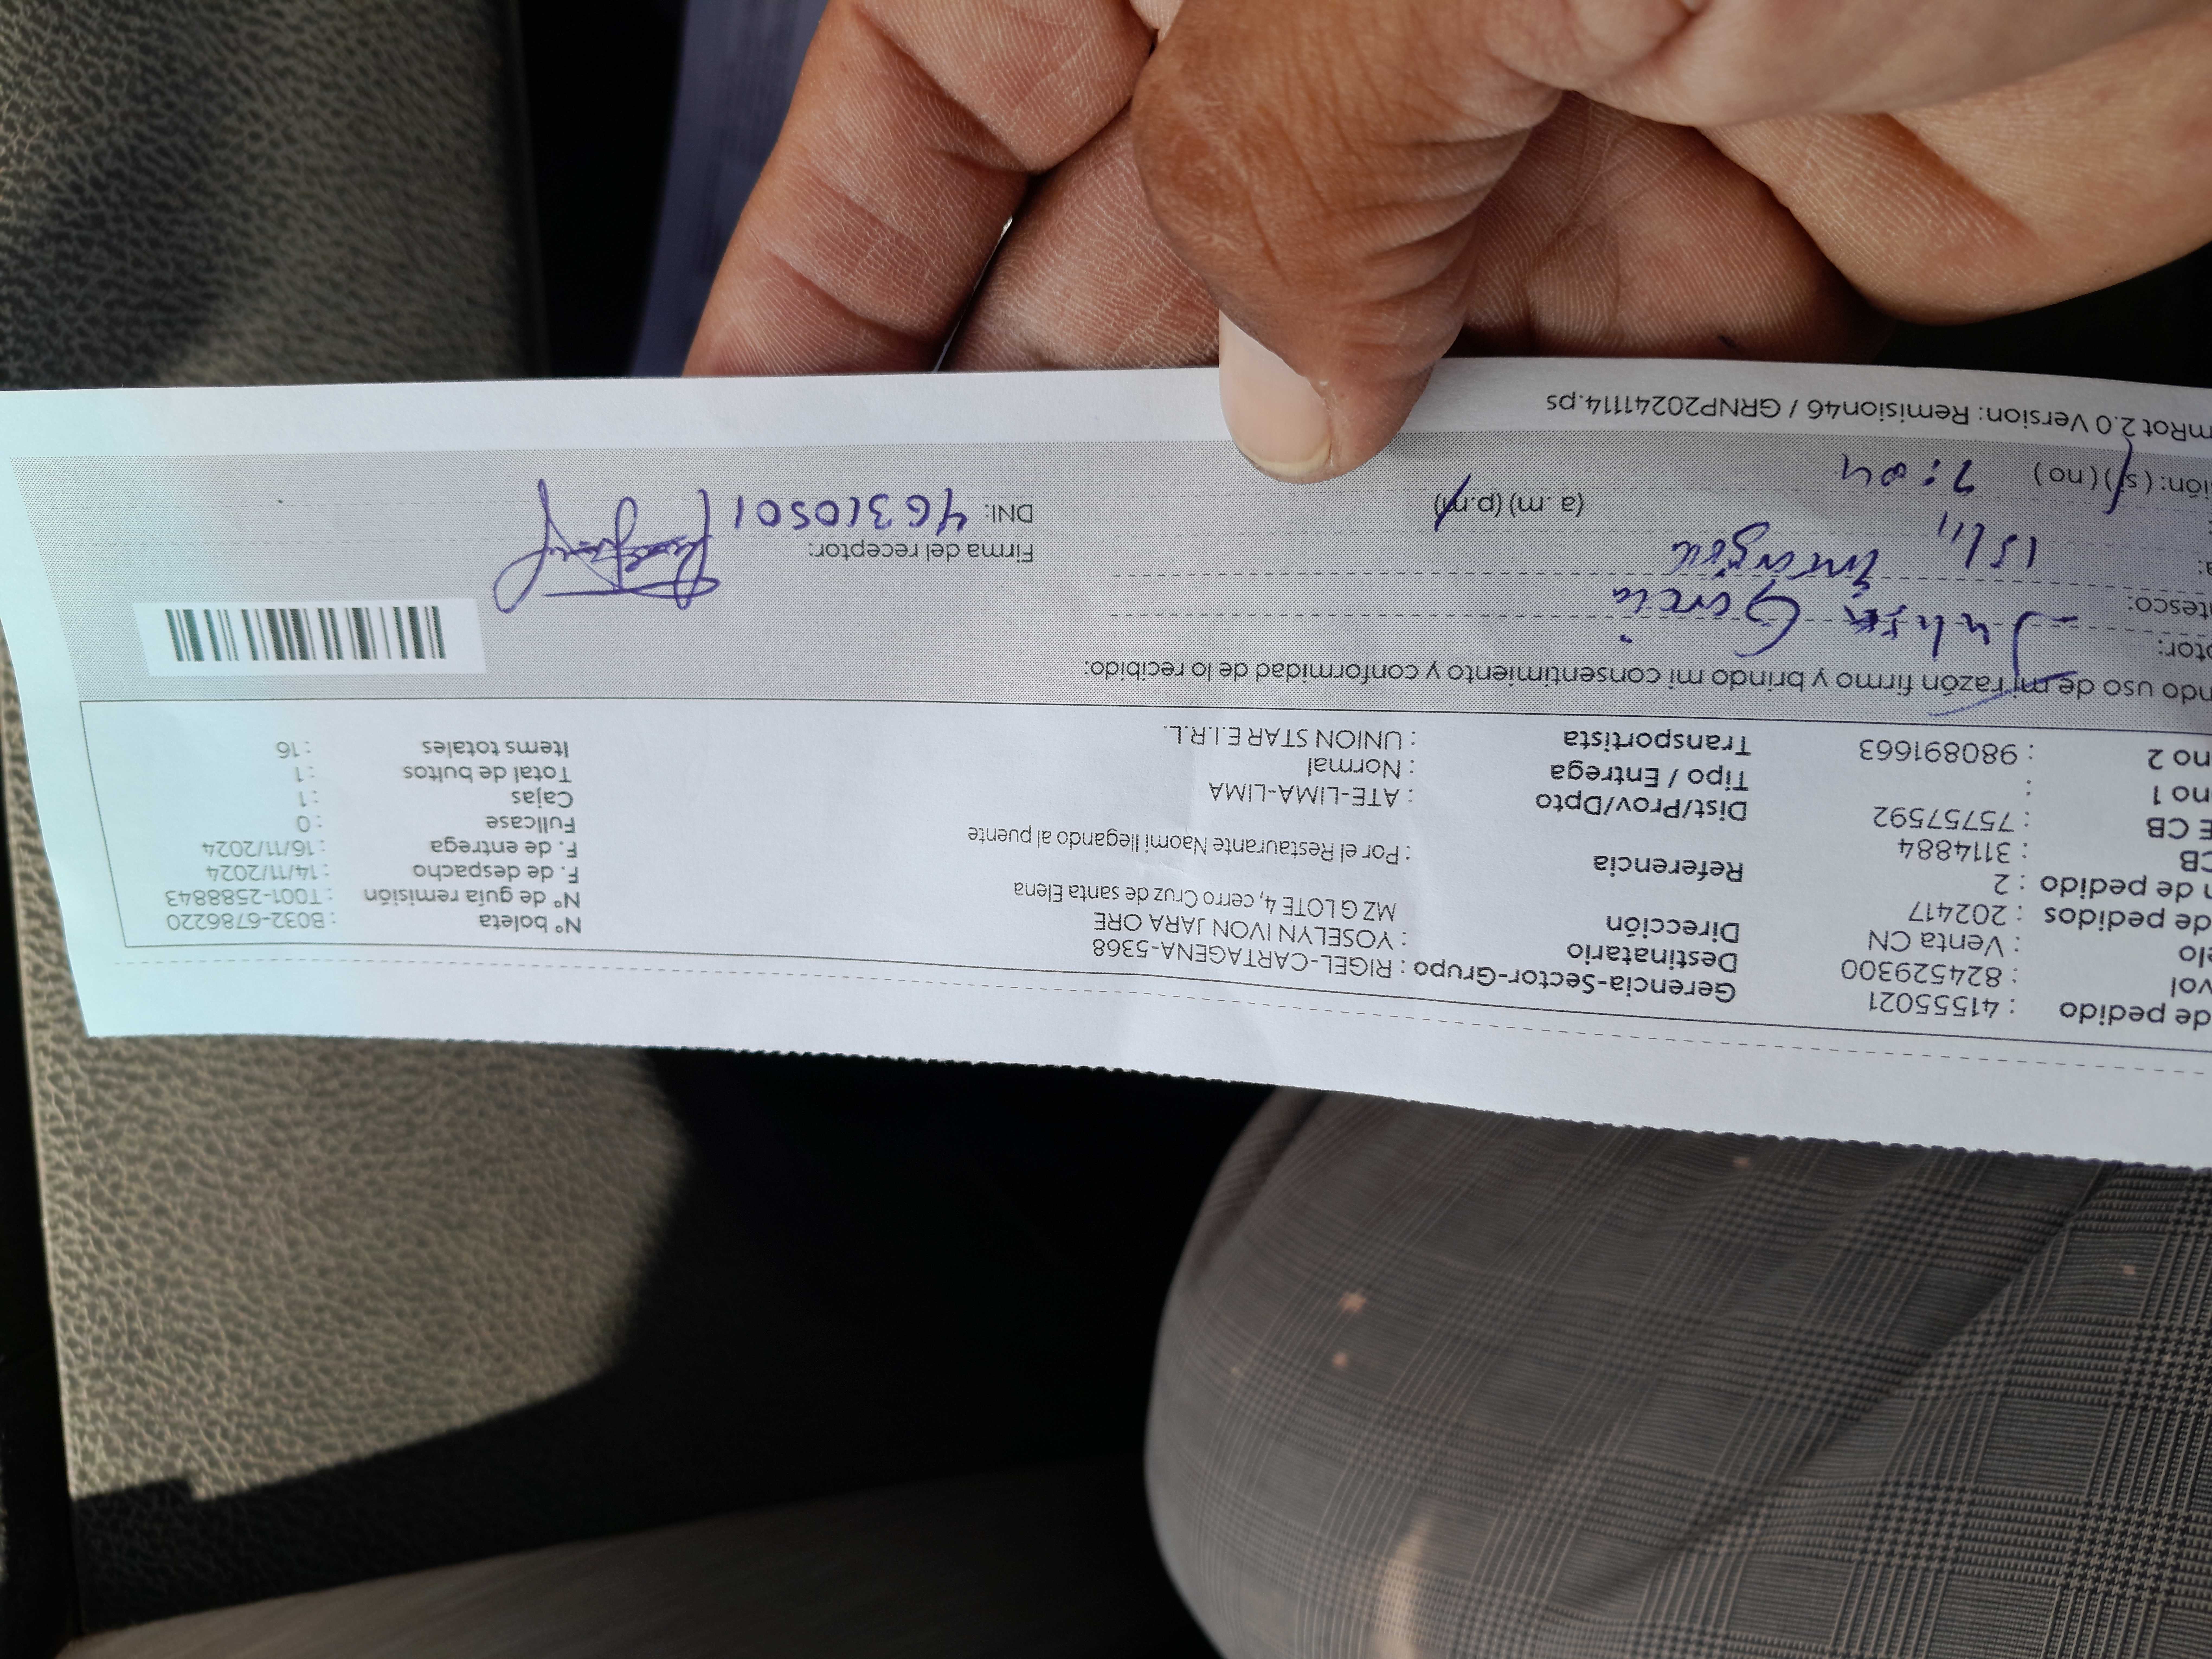 de pedido : 41555021 Gerencia-Sector-Grupo : RIGEL-CARTAGENA-5368 Nº boleta : B032-6786220
vol : 824529300 Destinatario : YOSELYN IVON JARA ORE Nº de guía remisión : T001-2588843
elo : Venta CN Dirección MZ G LOTE 4, cerro Cruz de santa Elena F. de despacho : 14/11/2024
de pedidos : 202417 F. de entrega : 16/11/2024
n de pedido : 2 Referencia : Por el Restaurante Naomi llegando al puente Fullcase : 0
CB : 3114884 Cajas : 1
E CB : 75757592 Dist/Prov/Dpto : ATE-LIMA-LIMA Total de bultos : 1
no 1 : Tipo / Entrega : Normal Items totales : 16
no 2 : 980891663 Transportista : UNION STAR E.I.R.L.
ndo uso de mi razón firmo y brindo mi consentimiento y conformidad de lo recibido:
ptor: García
ntesco:
a: 15/11 Firma del receptor:
ión: (si) (no) 7:04 (a.m) (p.m) DNI: 46310501
mRot 2.0 Version: Remision46 / GRNP20241114.ps